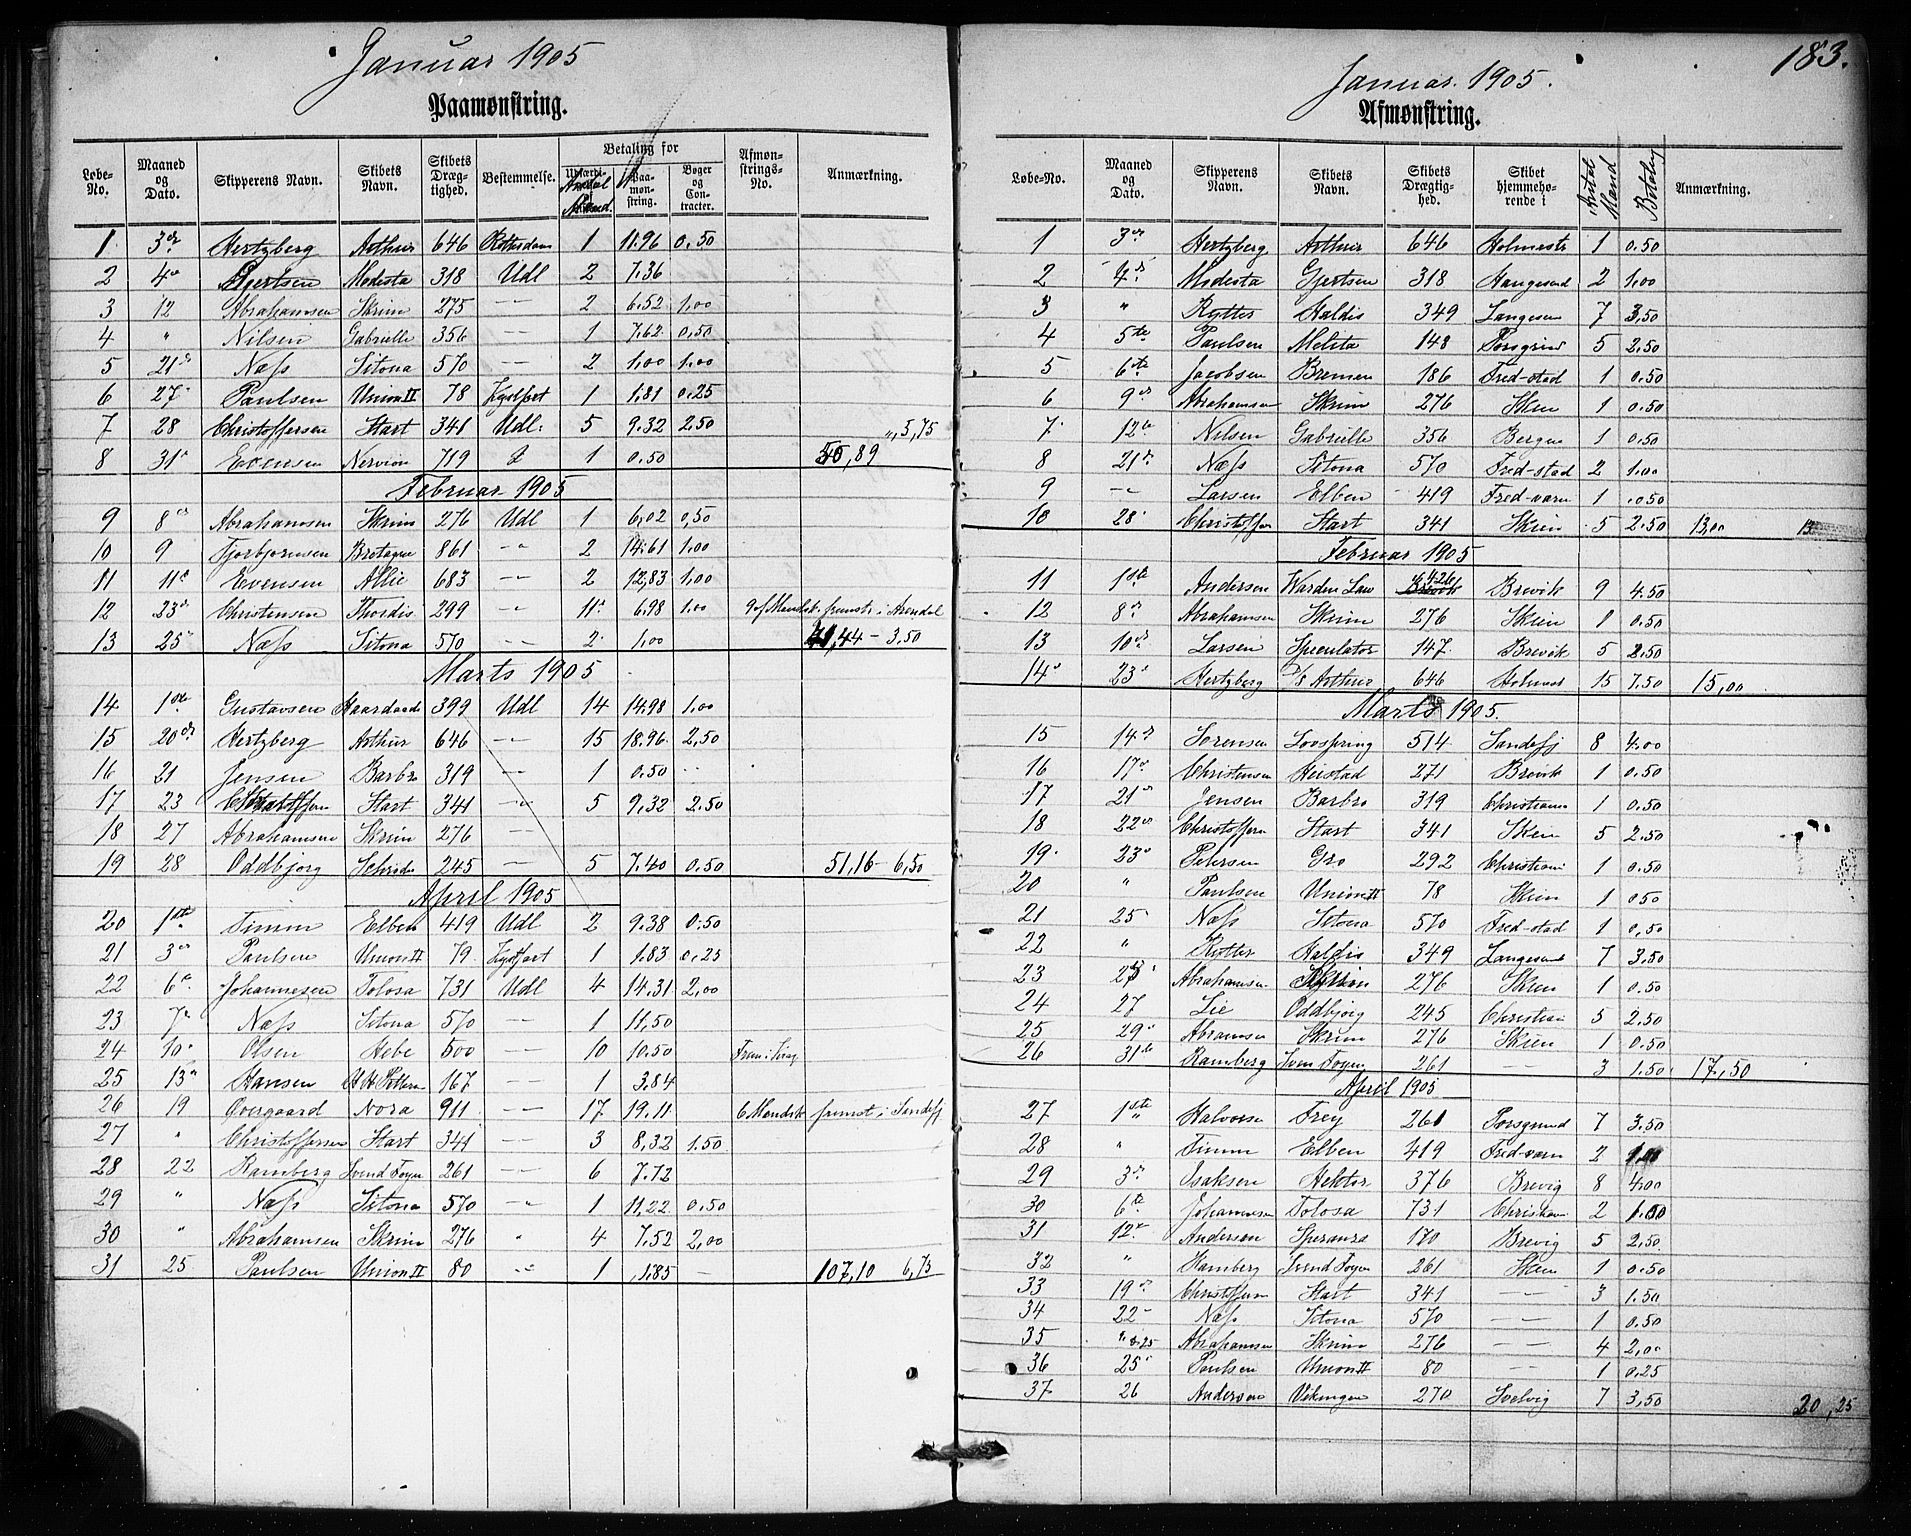 Januar 1905
Paamønstring.
Løbe-No. Maaned og Dato. Skipperens Navn. Skibets Navn. Skibets Dræg-tighed. Bestemmelse. Betaling for Antal Mand. Paa-mon-string. Bøger og Con-tracter. Afmøn-strings-No. Anmærkning.
1 3die Hertzberg Arthur 646 1 11.96 0.50
2 4de Gjertsen Modesta 318 Udl 2 7.36
3 12 Abrahamsen Skrim 275 -"- 2 6.52 1.00
4 " Nilsen Gabrielle 356 -"- 1 7.62 0.50
5 21de Næss Sitona 570 -"- 2 1.00 1.00
6 27 Paulsen Union II 78 Kystfart 1 1.81 0.25
7 28 Christoffersen Start 341 Udl. 5 9.32 2.50 5,75
8 31 Evensen Nervion 719 1 0.50 50,89
Februar 1905
9 8de Abrahamsen Skrim 276 Udl 1 6,02 0,50
10 9 Tjorbjornsen Bretagne 861 -"- 2 14.61 1.00
11 11te Evensen Allie 683 -"- 2 12,83 1,00
12 23de Christensen Thordis 299 -"- 11 6.98 1.00 9 af Mandsk. fremst. i Arendal
13 25 Næss Sitona 570 -"- 2 1.00 41,44 - 3.50
Marts 1905
14 1ste Gustavsen Haardaade 399 Udl 14 14.98 1.00
15 20de Hertzberg Arthur 646 -"- 15 18.96 2,50
16 21 Jensen Barbro 319 -"- 1 0.50
17 23 Christoffersen Start 341 -"- 5 9.32 2.50
18 27 Abrahamsen Skrim 276 -"-
19 28 Oddbjørg 245 - 5 7.40 0.50 51,16 - 6,50
April 1905
20 1ste Timm Elben 419 Udl 2 9.38 0.50
21 3die Paulsen Union II 79 Kystfart 1 1.83 0.25
22 6te Johannesen Tolosa 731 Udl 4 14.31 2,00
23 7de Næss Sitona 570 -"- 1 11,50
24 10 Olsen Hebe 500 -"- 10 10.50
25 13de Hansen 167 -"- 1 3.84
26 19 Overgaard Nora 911 -"- 17 19.11 6 Mandsk fremst i Sandefj
27 " Christoffersen Start 341 -"- 3 8,32 1.50
28 22 Ramberg Svend Foyn 261 -"- 6 7.72
29 " Næss Sitona 570 " 1 11,22 0.50
30 " Abrahamsen Skrim 276 " 4 7.52 2,00
31 25 Paulsen Union II 80 -"- 1 1.85 - 107,10 6,75
183.
Januar. 1905.
Afmønstring.
Løbe-No. Maaned og Dato. Skipperens Navn. Skibets Navn. Skibets Drægtig-hed. Skibet hjemmehø-rende i Antal Mand Beløb Anmærkning.
1 3die Hertzberg Arthur 646 Holmestr 1 0.50
2 4de Modesta Gjertsen 318 Haugesund 2 1.00
3 " Rytter Haldis 349 Langesun 7 3,50
4 5te Paulsen Melita 148 Porsgrund 5 2.50
5 6te Jacobsen Bremen 186 Fred-stad 1 0.50
6 9de Abrahamsen Skrim 276 Skien 1 0.50
7 12te Nilsen Gabrielle 356 Bergen 1 0.50
8 21de Næss Sitona 570 Fred-stad 2 1.00
9 -- Larsen Elben 419 Fred-værn 1 0.50
10 28 Christoffersen Start 341 Skien 5 2.50 13,00
Februar 1905
11 1ste Andersen Warden Law 426 Brevik 9 4.50
12 8de Abrahamsen Skrim 276 Skien 1 0.50
13 10de Larsen Speculator 147 Brevik 5 2.50
14 23 Hertzberg D/S Arthur 646 Holmest 15 7.50 15,00
Marts 1905.
15 14de Sørensen Lovspring 514 Sandefj 8 4.00
16 17de Christensen Heistad 271 Brevik 1 0.50
17 21de Jensen Barbro 319 Christiania 1 0.50
18 22de Christoffersen Start 341 Skien 5 2.50
19 23 Petersen Gro 292 Christiania 1 0.50
20 " Paulsen Union II 78 Skien 1 0 50
21 25 Næss Sitona 570 Fred-stad 1 0,50
22 " Rytter Haldis 349 Langesund 7 3.50
23 27 Abrahamsen Skrim 276 Skien 1 0.50
24 27 Lie Oddbjørg 245 Christian 5 2,50
25 29 Abramsen Skrim 276 Skien 1 0.50
26 31te Ramberg Sven Foyn 261 -- 3 1.50 17,50
April 1905
27 1ste Halvorsen Frey 261 Porsgrund 7 3.50
28 " Timm Elben 419 Fred-værn 2 1.00
29 3de Isaksen Hektor 376 Brevig 8 4.00
30 6te Johannesen Tolosa 731 Christian 2 1.00
31 12te Andersen Speranza 170 Brevig 5 2,50
32 " Ramberg Svend Foyn 261 Skien 1 0.50
33 19de Christoffersen Start 341 -- 3 1.50
34 22 Næss Sitona 570 -- 1 0.50
35 " Abrahamsen Skrim 276 -- 4 2,00
36 25 Paulsen Union II 80 -- 1 0.25
37 26 Andersen Vikingen 270 Svelvig 7 3,50 20,25